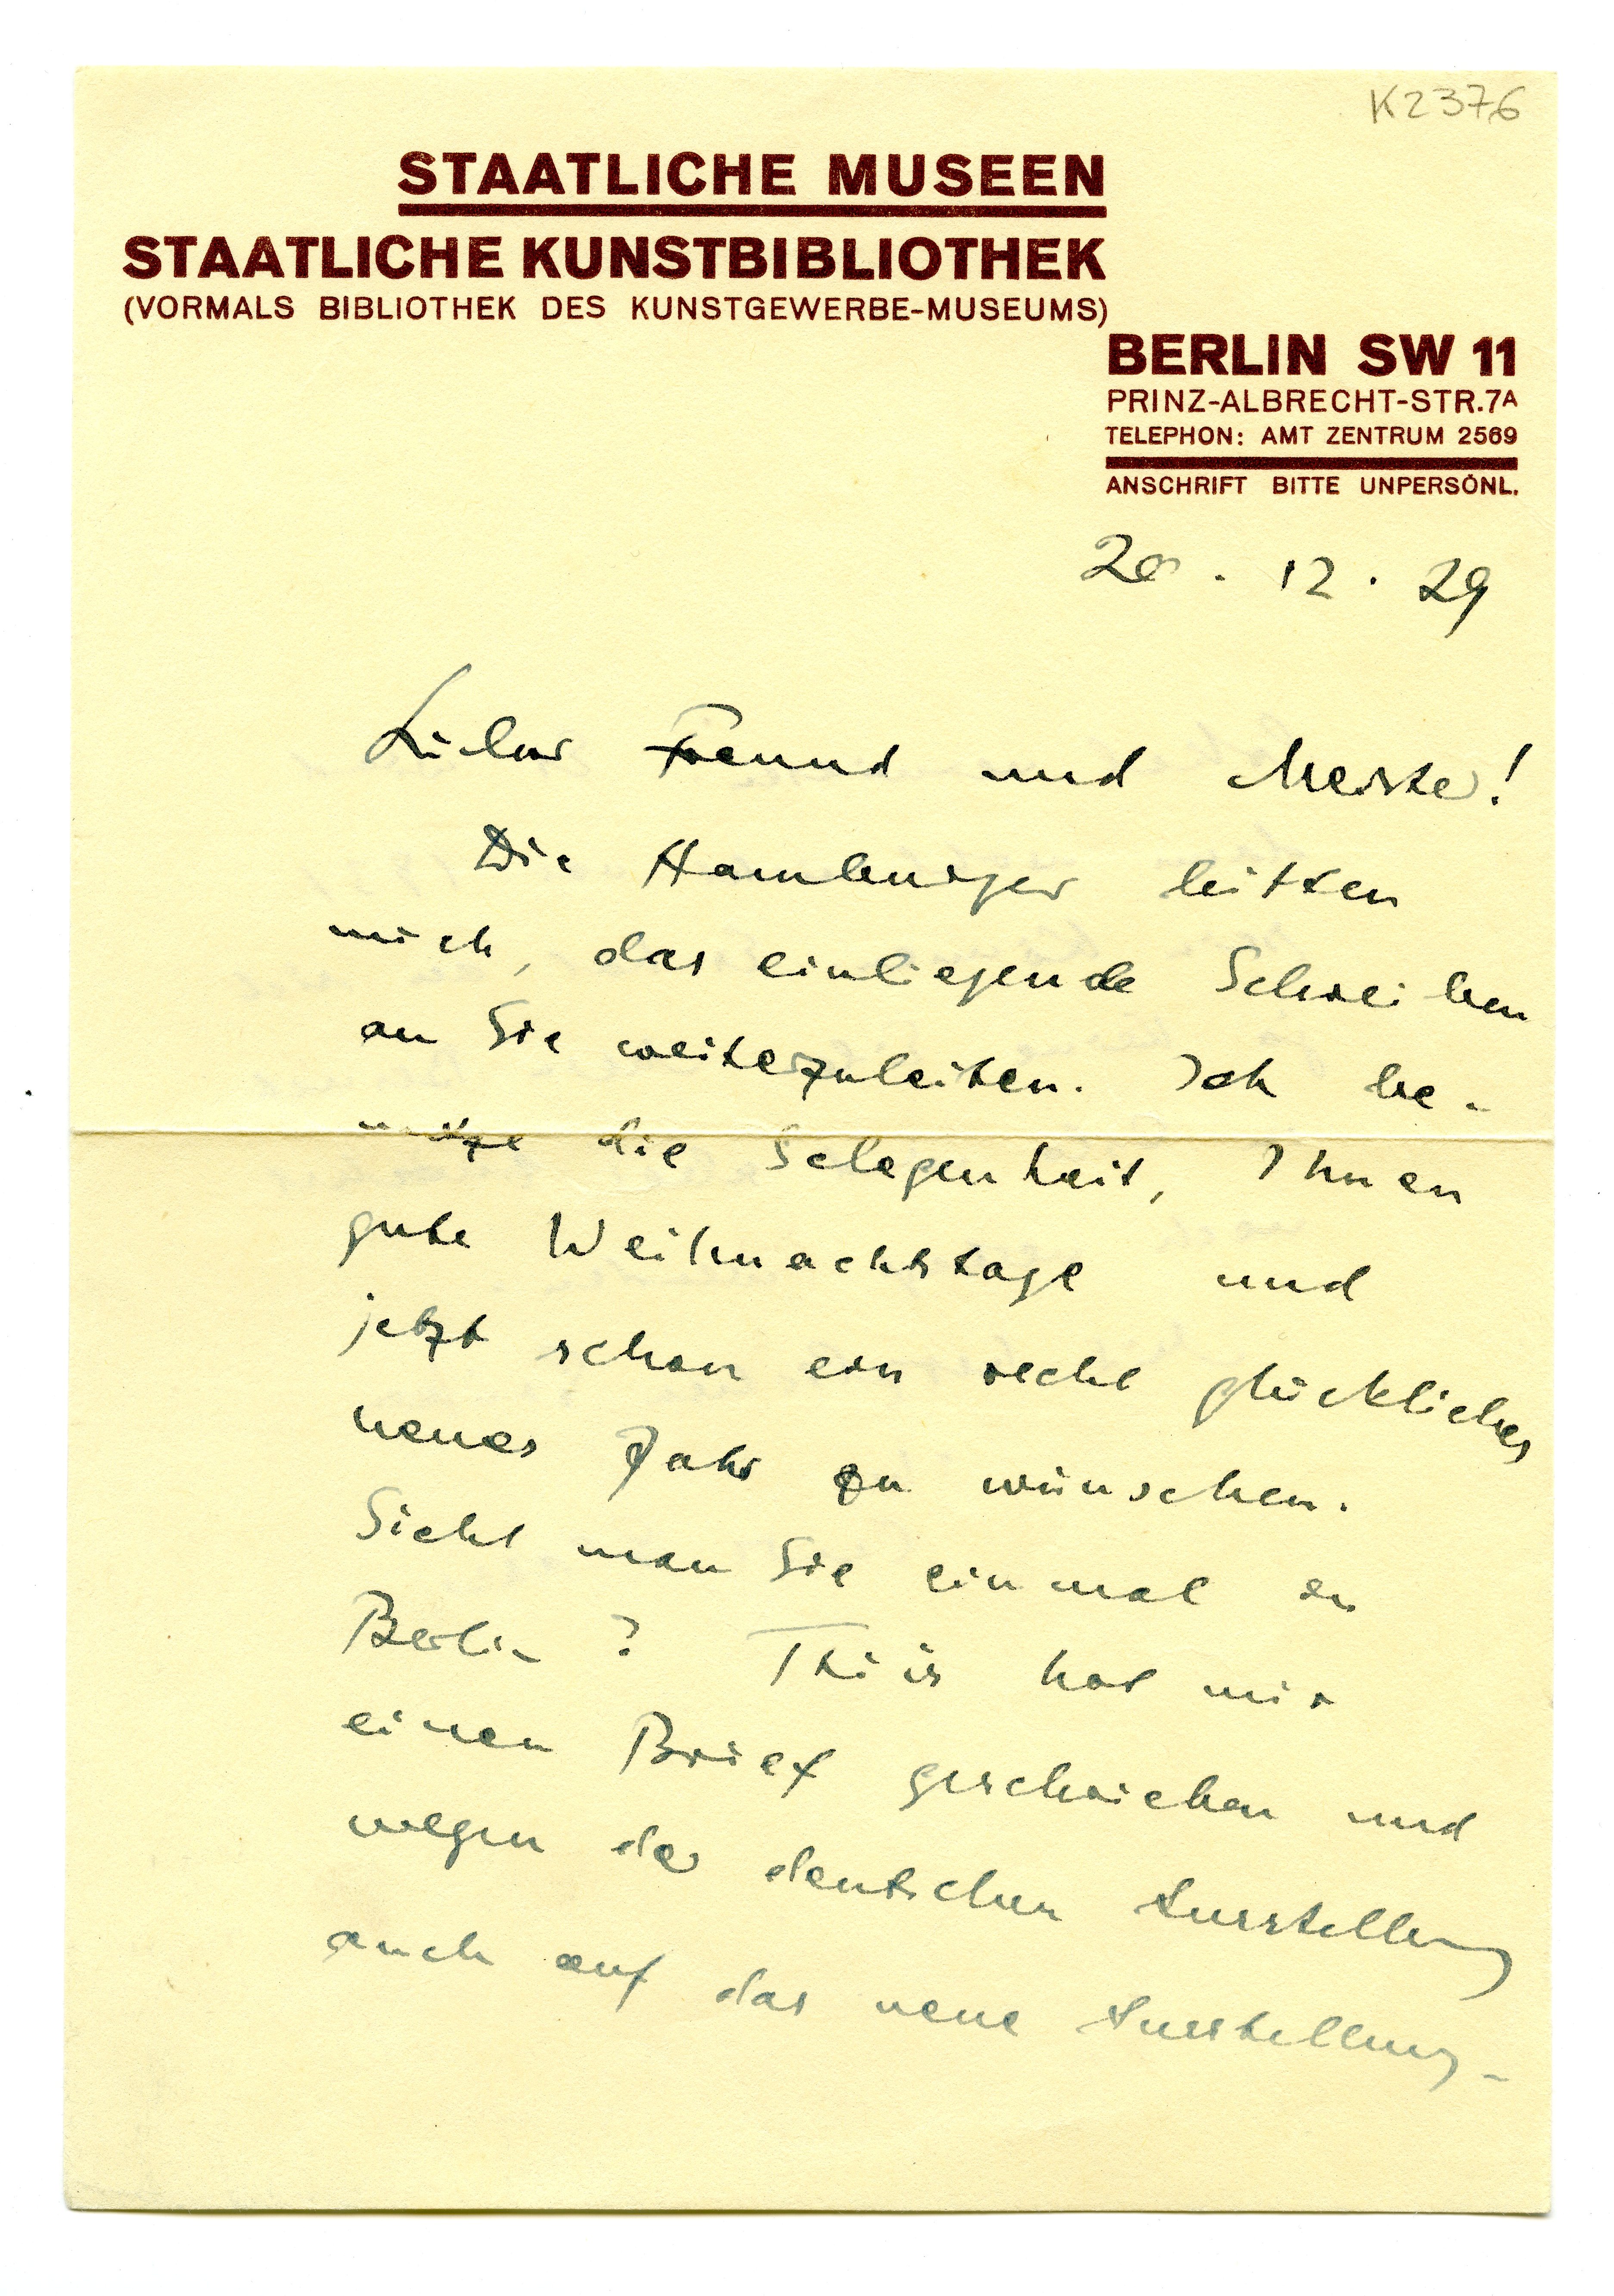 K2376
STAATLICHE MUSEEN
STAATLICHE KUNSTBIBLIOTHEK
(VORMALS BIBLIOTHEK DES KUNSTGEWERBE-MUSEUMS)
BERLIN SW 11
PRINZ-ALBRECHT-STR.7A
TELEPHON: AMT ZENTRUM 2569
ANSCHRIFT BITTE UNPERSÖNL.
20. 12. 29
Lieber Freund und Meister!
Die Hamburger bitten
mich, das einliegende Schreiben
an Sie weiterzuleiten. Ich be-
nütze die Gelegenheit, Ihnen
gute Weihnachtstage und
jetzt schon ein recht glückliches
neues Jahr zu wünschen.
Sieht man Sie einmal in
Berlin? Thiis hat mir
einen Brief geschrieben und
wegen der deutschen Ausstellung
auch auf das neue Ausstellung-